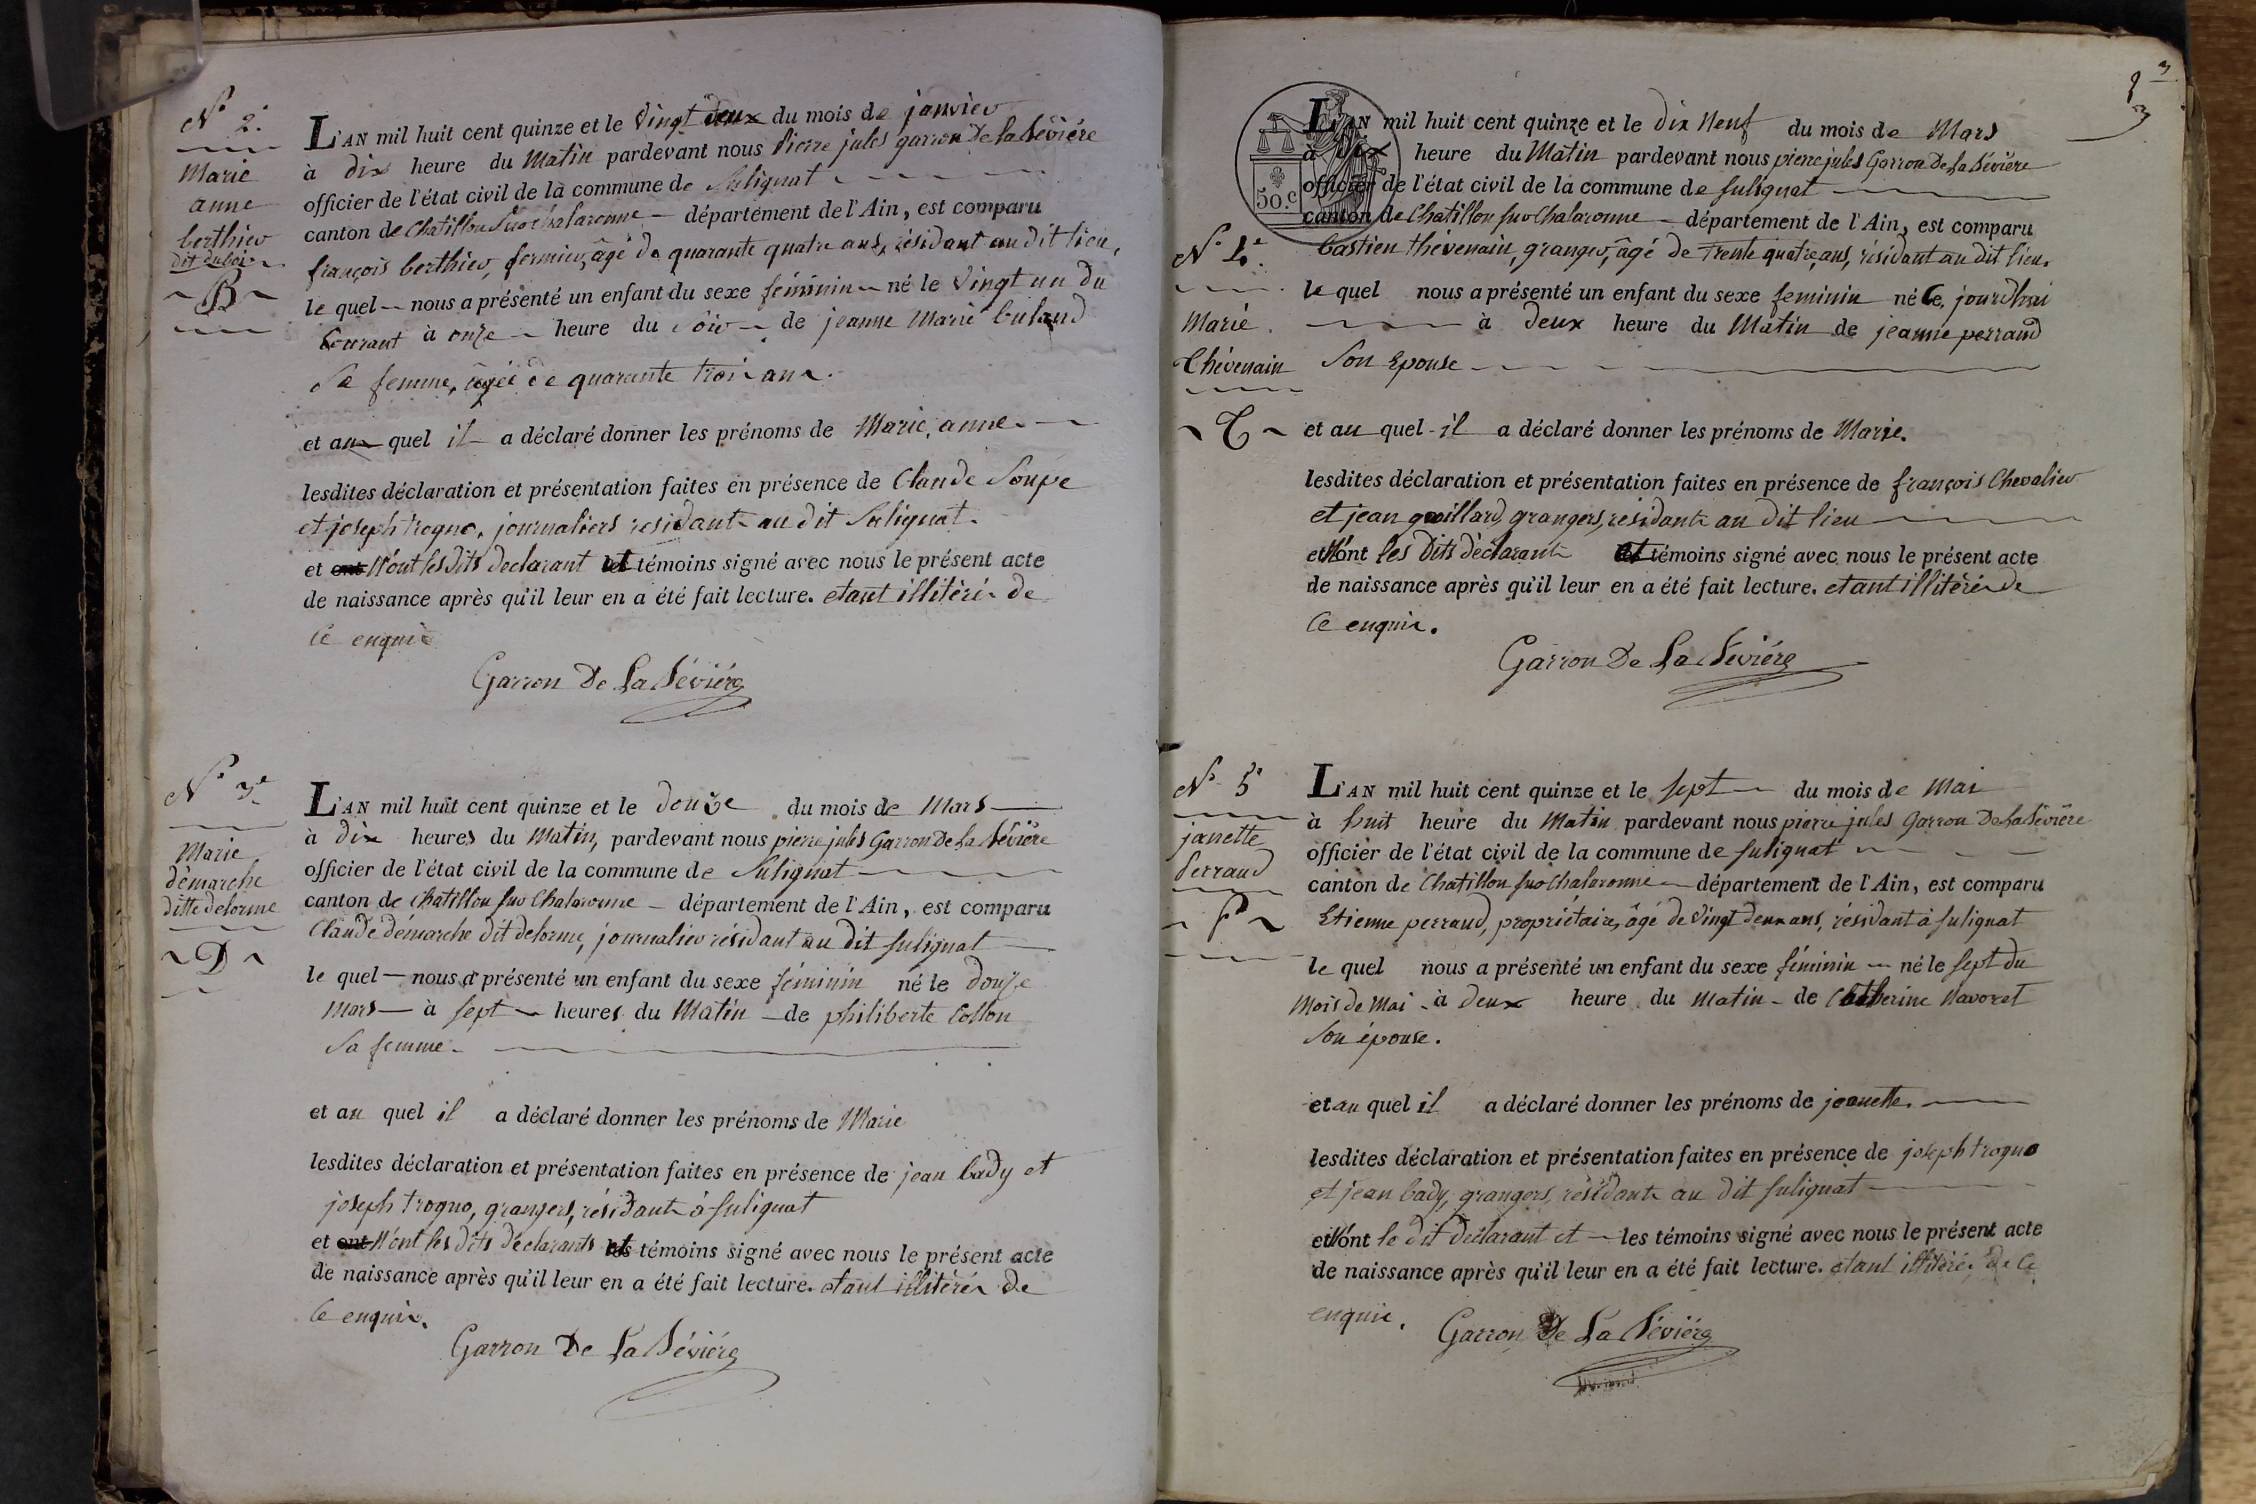 N° 2.
Marie
anne
berthier
dit dubois
B
L'AN mil huit cent quinze et le Vingt deux du mois de janvier
à dix heure du Matin pardevant nous Pierre jules garron De la Séviére
officier de l'état civil de la commune de Sulignat
canton de Chatillon Sur chalaronne département de l'Ain, est comparu
françois berthier, fermier, âgé de quarante quatre ans, résidant au dit lieu,
le quel nous a présenté un enfant du sexe féminin né le Vingt un du
Courant à onze heure du Soir de jeanne Marie
Sa femme, âgée de quarante trois ans.
et au quel il a déclaré donner les prénoms de Marie, anne.
lesdites déclaration et présentation faites en présence de Claude Soupe
et joseph trogno, journaliers residants au dit Sulignat.
et ont N'ont les dits declarant et témoins signé avec nous le présent acte
de naissance après qu'il leur en a été fait lecture. etant illitérés de
Ce enquis
Garron De La Séviére
N° 3e
Marie
démarche
ditte delorme
D
L'AN mil huit cent quinze et le douze du mois de Mars
à dix heures du Matin, pardevant nous pierre jules Garron De La Séviére
officier de l'état civil de la commune de Sulignat
canton de Chatillon sur Chalaronne département de l'Ain, est comparu
Claude démarche dit delorme, journalier résidant au dit sulignat
le quel nous a présenté un enfant du sexe féminin né le douze
Mars à sept heures du Matin de philiberte Collon
Sa femme.
et au quel il a déclaré donner les prénoms de Marie
lesdites déclaration et présentation faites en présence de jean bady et
joseph trogno, grangers, résidants à sulignat
et ont N'ont les dits déclarants et témoins signé avec nous le présent acte
de naissance après qu'il leur en a été fait lecture. etant illitérés de
Ce enquis.
Garron De La Séviére
3
3
50.c
N°
Marie
Thévenain
T
L'AN mil huit cent quinze et le dix Neuf du mois de Mars
à dix heure du Matin pardevant nous pierre jules Garron De La Séviére
officier de l'état civil de la commune de sulignat
canton de Chatillon sur Chalaronne département de l'Ain, est comparu
bastien thévenain, granger, âgé de trente quatre ans, résidant au dit lieu.
le quel nous a présenté un enfant du sexe feminin né Ce jourdhui
à deux heure du Matin de jeanne perraud
Son Epouse
et au quel il a déclaré donner les prénoms de Marie.
lesdites déclaration et présentation faites en présence de françois Chevalier
et jean grangers, residants au dit lieu
et N'ont les dits déclarants et témoins signé avec nous le présent acte
de naissance après qu'il leur en a été fait lecture. etant illitérés de
Ce enquis.
Garron De La Séviére
N° 5e
janette
Perraud
P
L'AN mil huit cent quinze et le sept du mois de Mai
à huit heure du Matin pardevant nous pierre jules Garron De La Séviére
officier de l'état civil de la commune de sulignat
canton de Chatillon sur Chalaronne département de l'Ain, est comparu
Etienne perraud, propriétaire, âgé de Vingt deux ans, résidant à sulignat
le quel nous a présenté un enfant du sexe féminin né le sept du
Mois de Mai à deux heure du Matin de Catherine Navoret
Son épouse.
et au quel il a déclaré donner les prénoms de jeanette.
lesdites déclaration et présentation faites en présence de joseph trogno
et jean bady, grangers, résidants au dit sulignat
et N'ont le dit déclarant et les témoins signé avec nous le présent acte
de naissance après qu'il leur en a été fait lecture. etant illitérés de Ce
enquis.
Garron De La Séviére